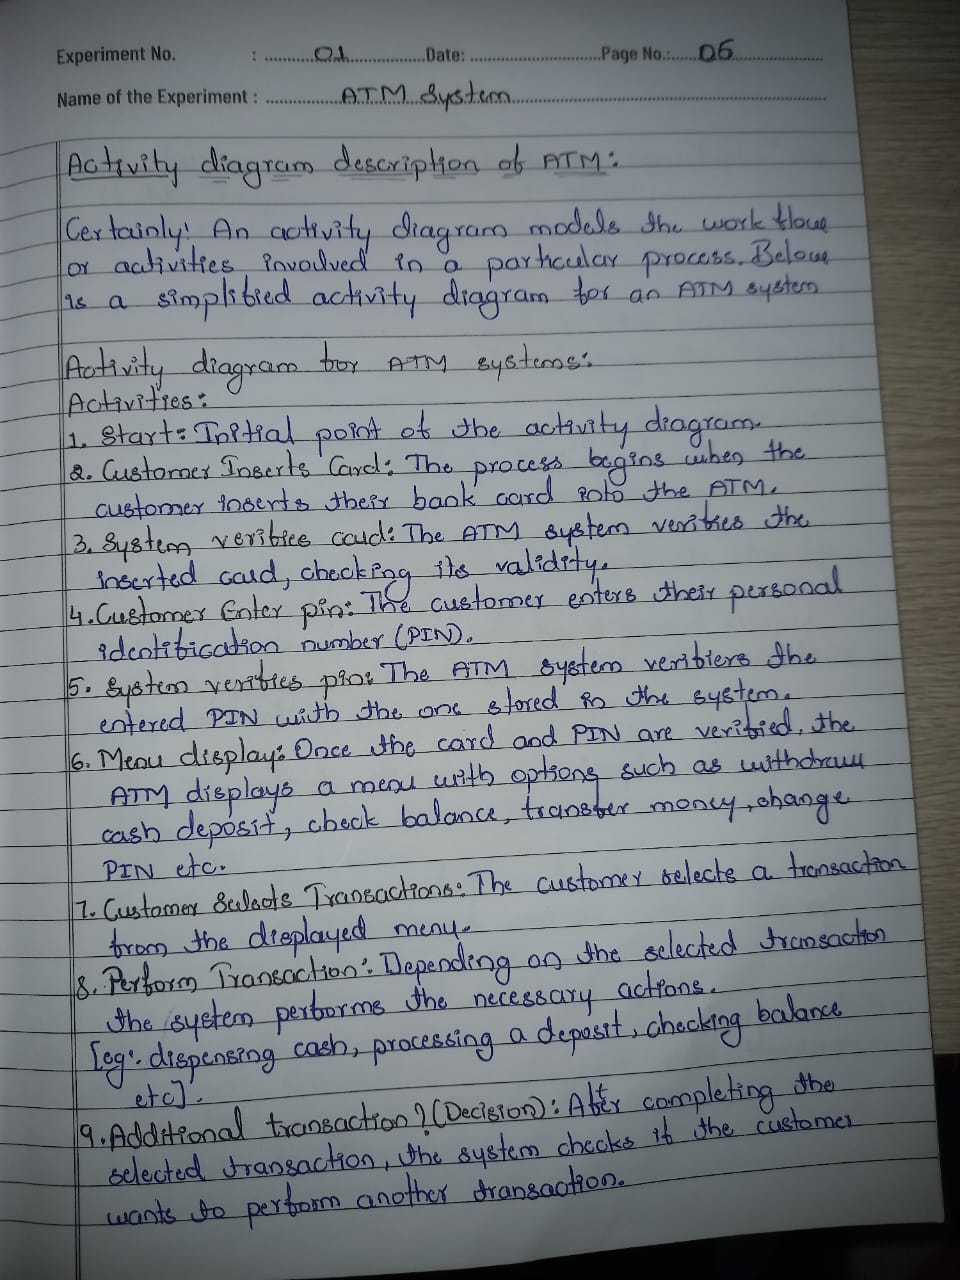 Experiment No. : 01 Date: Page No.: 06
Name of the Experiment : ATM System
Activity diagram description of ATM:
Certainly! An activity diagram models the work flow
or activities involved in a particular process. Below
is a simplified activity diagram for an ATM system
Activity diagram for ATM systems:
Activities:
1. Start: Initial point of the activity diagram.
2. Customer Inserts Card: The process begins when the
customer inserts their bank card into the ATM.
3. System verifies card: The ATM system verifies the
inserted card, checking its validity.
4. Customer Enter pin: The customer enters their personal
identification number (PIN).
5. System verifies pin: The ATM system verifiers the
entered PIN with the one stored in the system.
6. Menu display: Once the card and PIN are verified, the
ATM displays a menu with options such as withdraw
cash deposit, check balance, transfer money, change
PIN etc.
7. Customer Selects Transactions: The customer selects a transaction
from the displayed menu.
8. Perform Transaction: Depending on the selected transaction
the system performs the necessary actions.
[eg: dispensing cash, processing a deposit, checking balance
etc].
9. Additional transaction? (Decision): After completing the
selected transaction, the system checks if the customer
wants to perform another transaction.